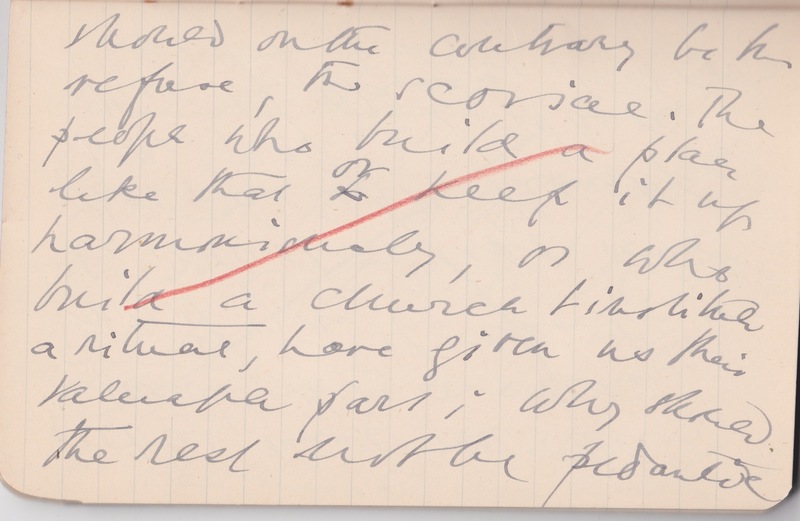 should on the contrary be the
refuse, the scoriae. The
people who build a place
like that or keep it up
harmoniously, or who
build a church & institute
a ritual, have given us their
valuable part; why should
the rest not be pedantic